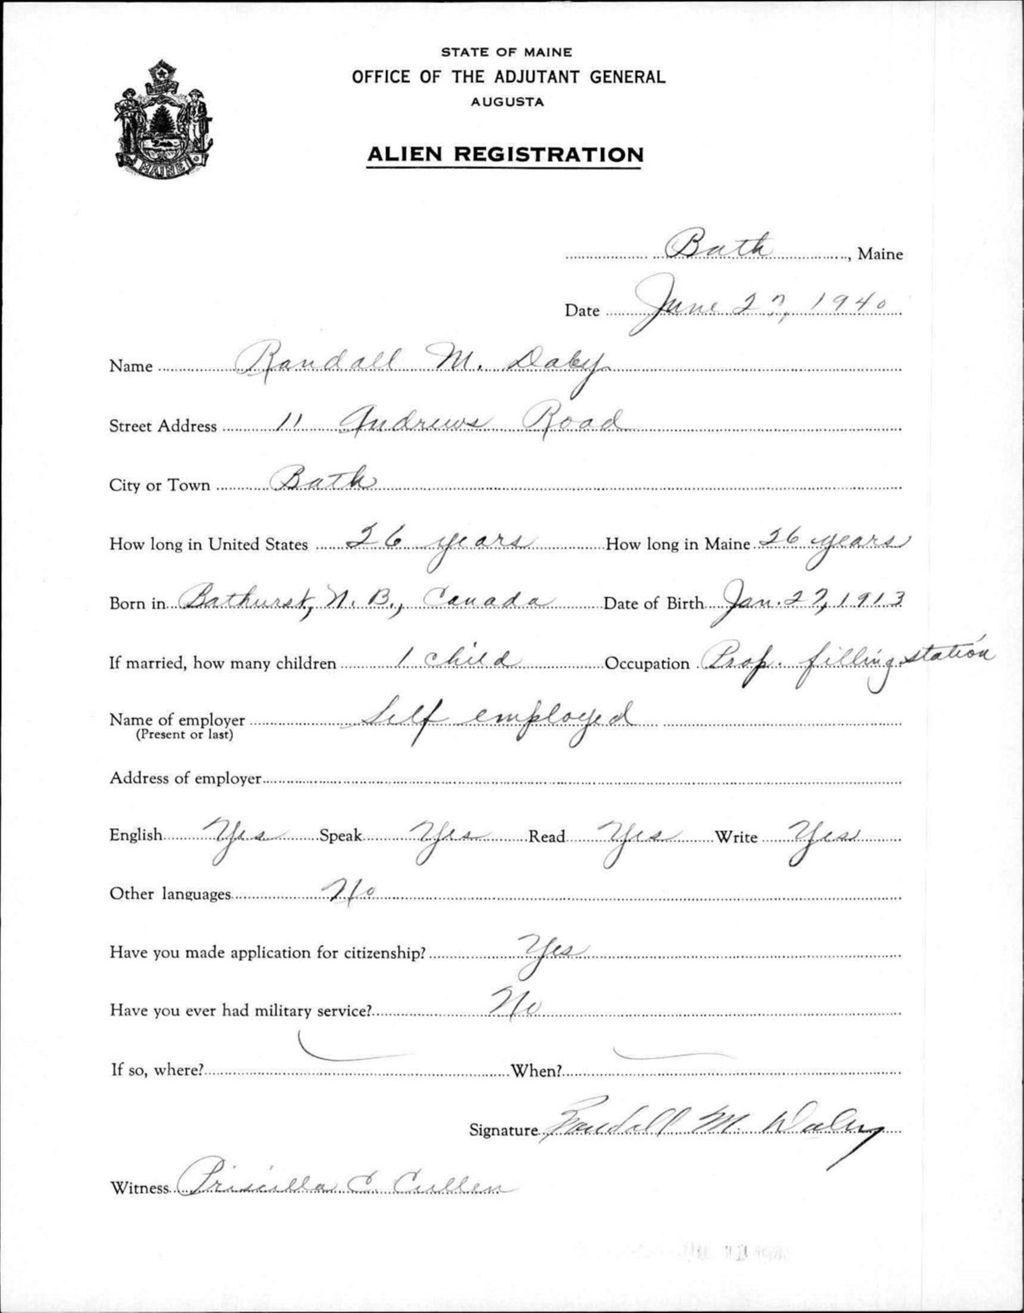 STATE OF MAINE
OFFICE OF THE ADJUTANT GENERAL
AUGUSTA
ALIEN REGISTRATION
MAINE
Bath, Maine
Date June 27, 1940
Name Randall M. Daley
Street Address 11 Andrews Road
City or Town Bath
How long in United States 26 years How long in Maine 26 years
Born in Bathurst, N. B., Canada Date of Birth Jan. 27, 1913
If married, how many children 1 child Occupation Prop. filling station
Name of employer Self employed
(Present or last)
Address of employer
English Yes Speak Yes Read Yes Write Yes
Other languages No
Have you made application for citizenship? Yes
Have you ever had military service? No
If so, where? When?
Signature Randall M. Daley
Witness Priscilla C. Cullen